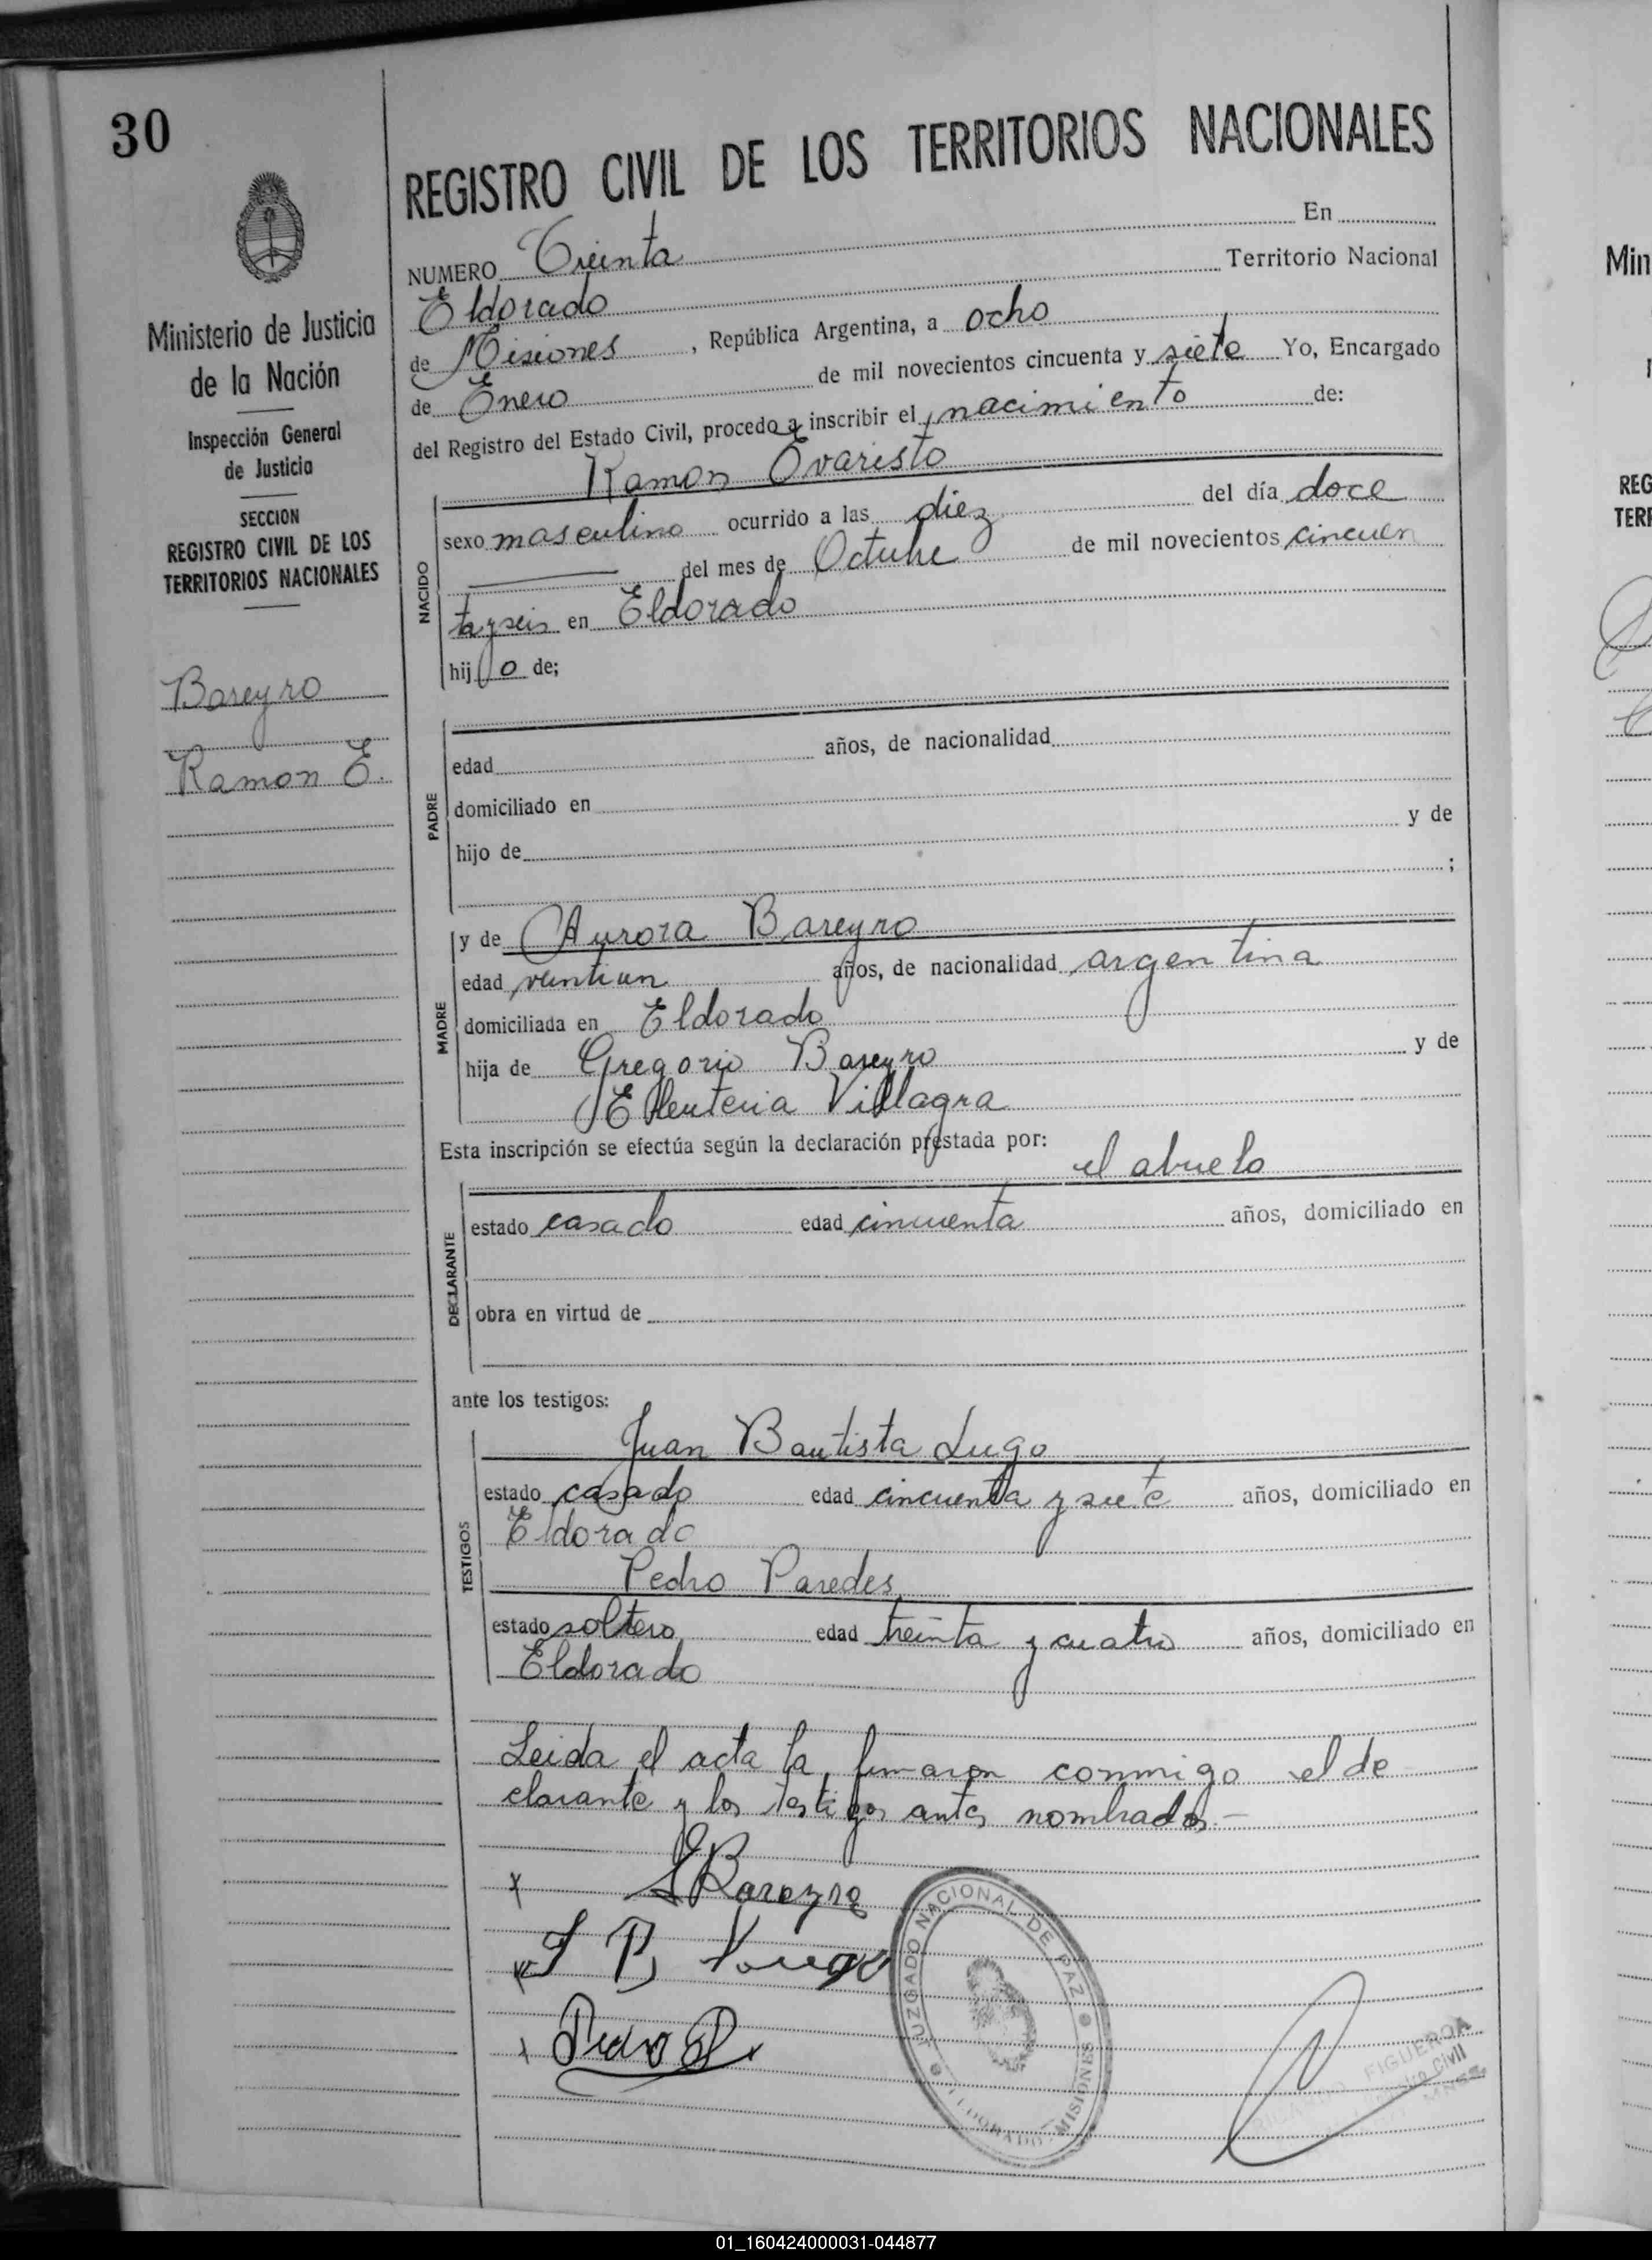 30
REGISTRO CIVIL DE LOS TERRITORIOS NACIONALES
Ministerio de Justicia
de la Nación
Inspección General
de Justicia
SECCION
REGISTRO CIVIL DE LOS
TERRITORIOS NACIONALES
Bareyro
Ramon E.
NUMERO Treinta En
Eldorado Territorio Nacional
de Misiones, República Argentina, a ocho
de Enero de mil novecientos cincuenta y siete Yo, Encargado
del Registro del Estado Civil, procedo a inscribir el nacimiento de:
NACIDO
Ramon Evaristo
sexo masculino ocurrido a las diez del día doce
del mes de Octubre de mil novecientos cincuen
ta y seis en Eldorado
hijo de;
PADRE
edad años, de nacionalidad
domiciliado en
hijo de y de
;
MADRE
y de Aurora Bareyro
edad veintiun años, de nacionalidad argentina
domiciliada en Eldorado
hija de Gregorio Bareyro y de
Elleuteria Villagra
Esta inscripción se efectúa según la declaración prestada por:
el abuelo
DECLARANTE
estado casado edad cincuenta años, domiciliado en
obra en virtud de
ante los testigos:
TESTIGOS
Juan Bautista Lugo
estado casado edad cincuenta y siete años, domiciliado en
Eldorado
Pedro Paredes
estado soltero edad treinta y cuatro años, domiciliado en
Eldorado
Leida el acta la firmaron conmigo el de
clarante y los testigos antes nombrados.-
x Bareyro
J B Lugo
x Pedro P.
JUZGADO NACIONAL DE PAZ
ELDORADO MISIONES
FIGUEROA
Civil
Min
REG
TERR
01_160424000031-044877